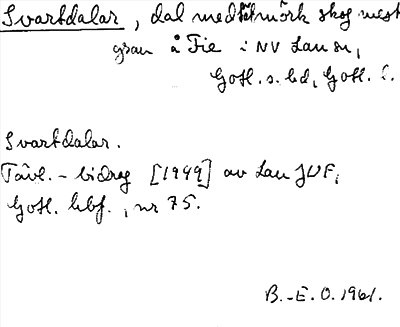 Svartdalar, dal med tätmörk skog mest
gran å Fie i NV Lau sn,
Gotl. s. hd, Gotl. l.
Svartdalar.
Tävl.-bidrag [1949] av Lau JUF,
Gotl. hbf., nr 75.
B.-E. O. 1961.